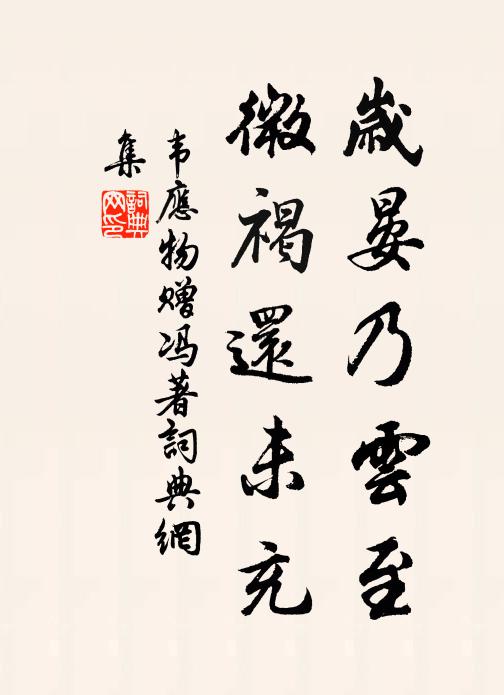 歲晏乃雲至
微褐還未充
韦應物赠冯著詞典網
集
詞典网印